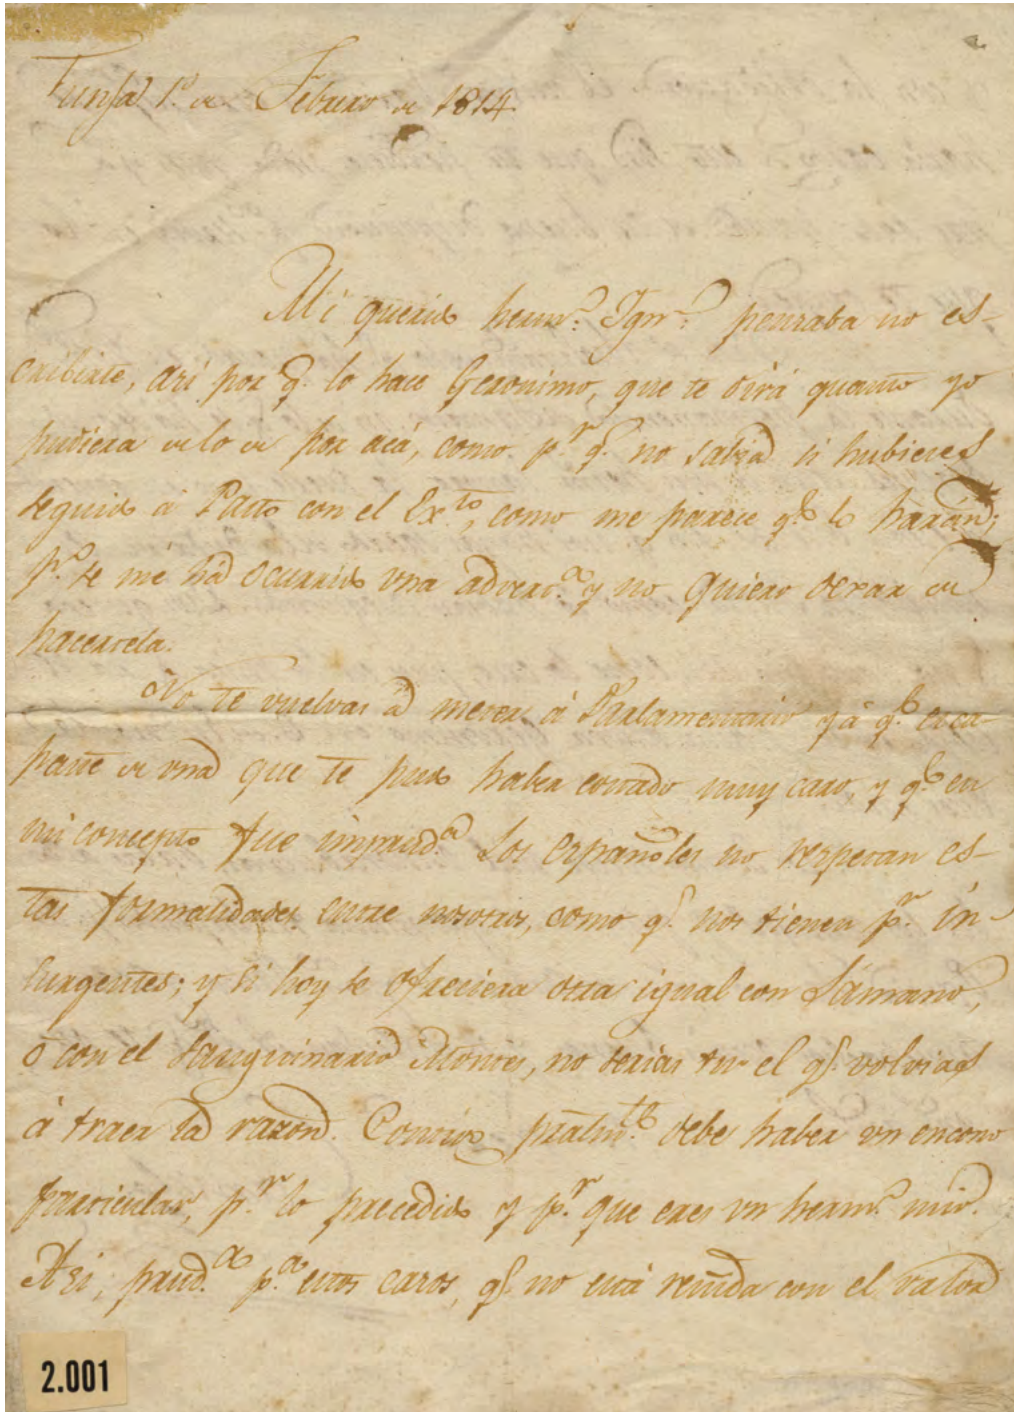 Tunja 1.º de Febrero de 1814.
Mi querido herm.º Ygn.º pensaba no es-
cribirte, asi por q.e lo hace Geronimo, que te dirá quanto yo
pudiera de lo de por acá, como p.r q.e no sabia si hubieses
seguido á Pasto con el Ex.to, como me parece q.e lo harán;
p.o se me há ocurrido una advert.a y no quiero dexar de
hacertela.
No te vuelvas á meter á Parlamentario yá q.e esca-
paste de una que te pudo haber costado muy caro, y q.e en
mi concepto fue imprud.a Los españoles no respetan es-
tas formalidades entre nosotros, como q.e nos tienen p.r in-
surgentes; y si hoy se ofreciera otra igual con Sámano,
ó con el sanguinario Montes, no serias tu el q.e volvias
á traer la razon. Contigo pralm.te debe haber un encono
particular, p.r lo precedido y p.r que eres un herm.o mio.
Asi, prud.a p.a estos casos, q.e no está reñida con el valor
2.001